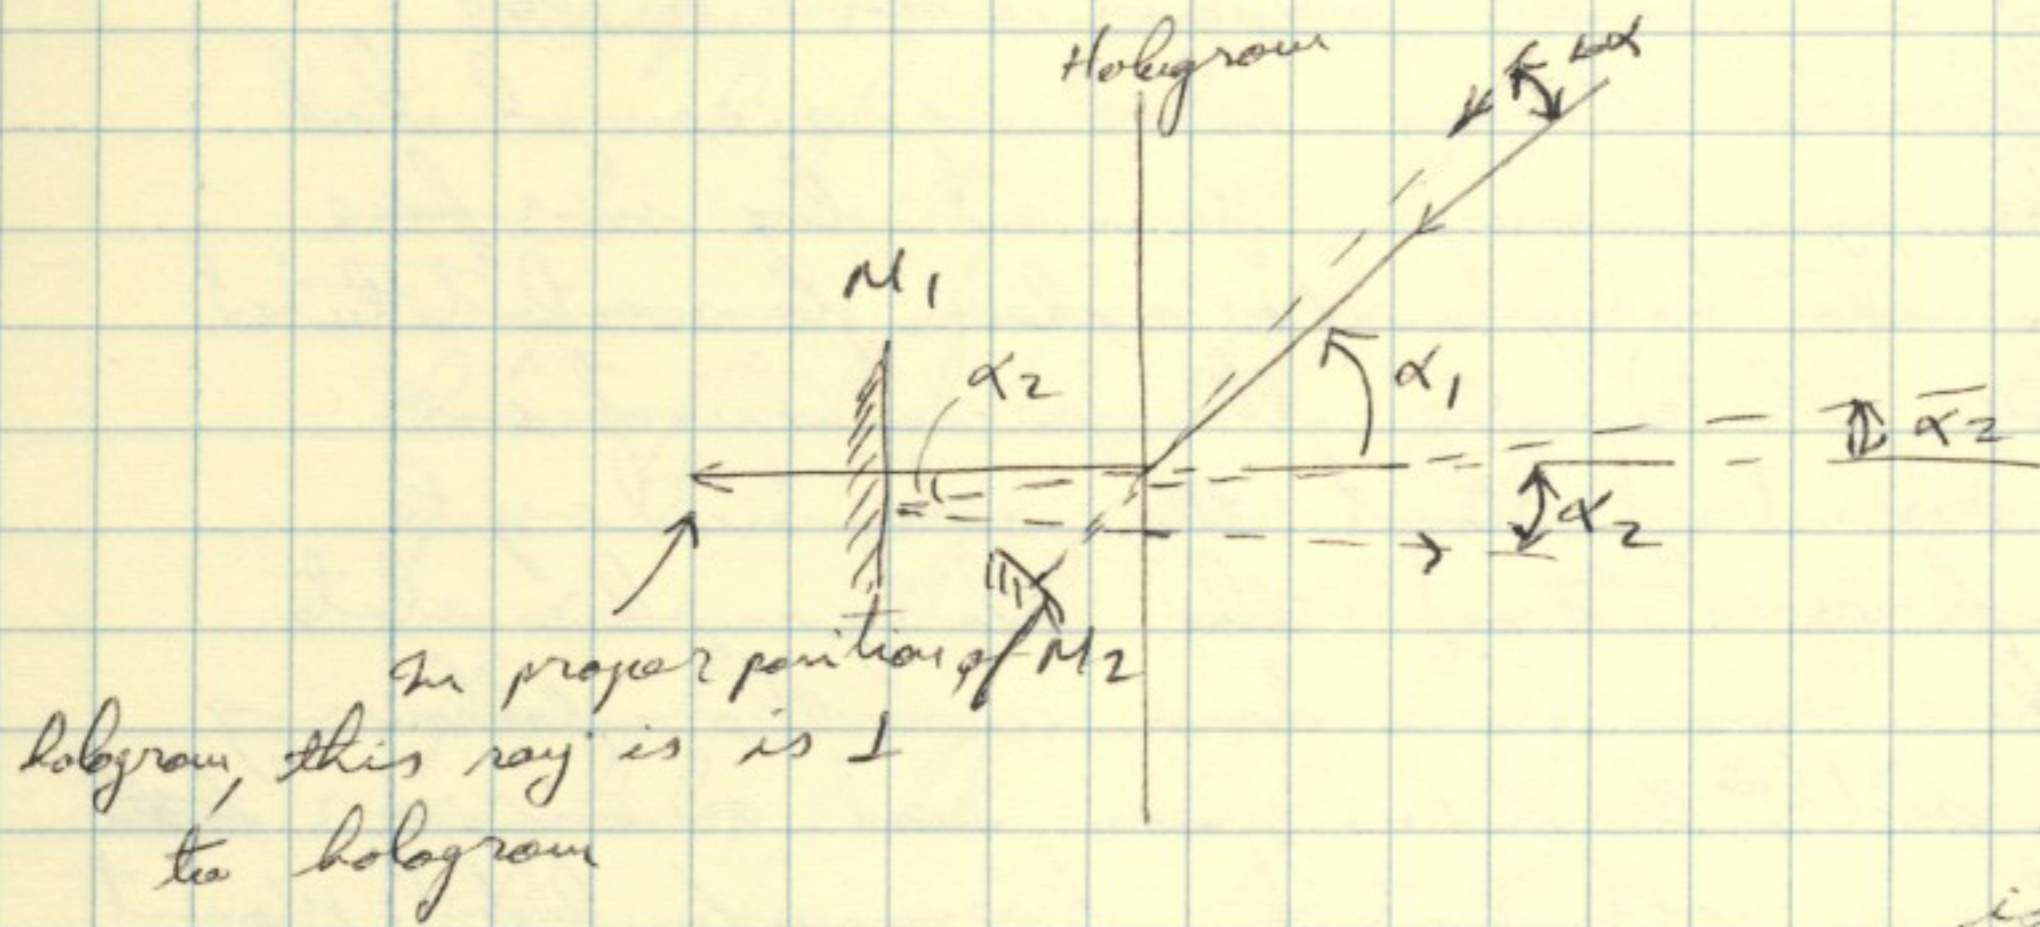 Hologram
Δα
M1
α2
α1
α̅2
α2
In proper position of M2
hologram, this ray is is ⊥
to hologram